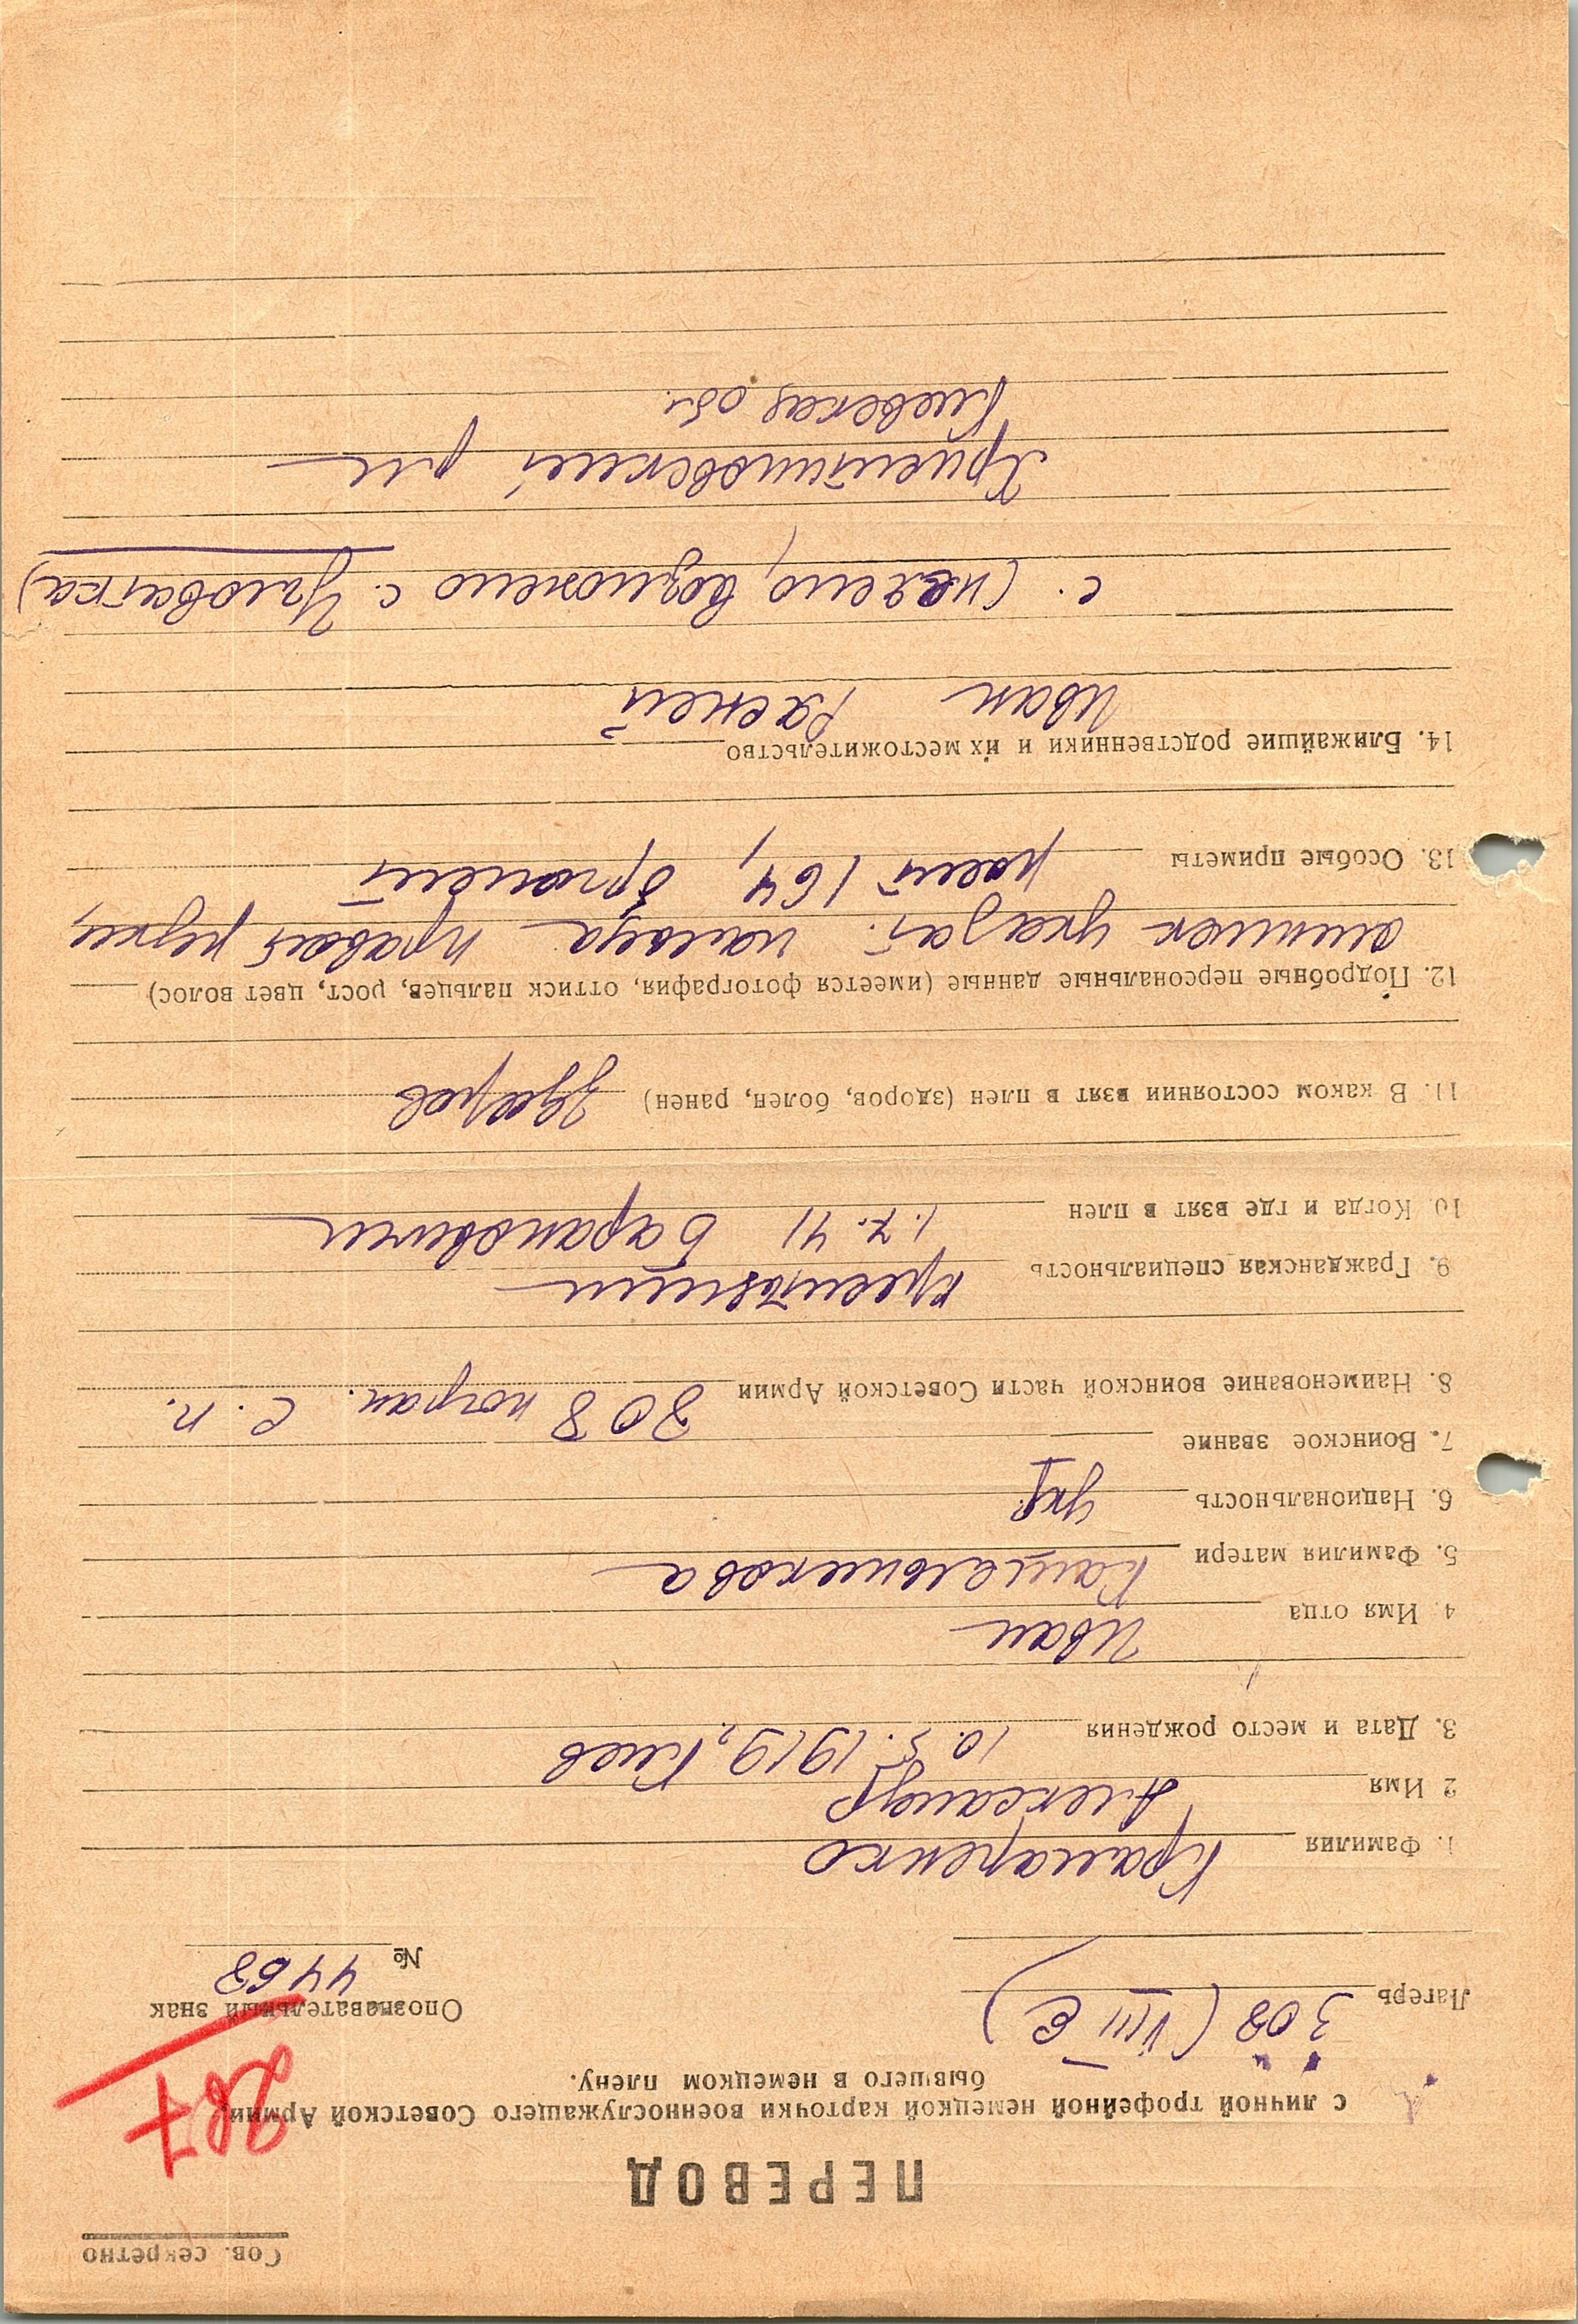 Сов. секретно
ПЕРЕВОД
с личной трофейной немецкой карточки военнослужащего Советской Армии,
бывшего в немецком плену.
267
Лагерь 308 (VIII E)
Опознавательный знак
№ 4468
1. Фамилия Крамаренко
2 Имя Александр
3. Дата и место рождения 10.5.1919, Киев
4. Имя отца Иван
5. Фамилия матери
6. Национальность укр
7. Воинское звание
8. Наименование воинской части Советской Армии 308 погран. с. п.
9. Гражданская специальность крестьянин
10. Когда и где взят в плен 1.7.41 Барановичи
11. В каком состоянии взят в плен (здоров, болен, ранен) здоров
12. Подробные персональные данные (имеется фотография, оттиск пальцев, рост, цвет волос)
оттиск указат. пальца правой руки,
рост 164, брюнет
13. Особые приметы
14. Ближайшие родственники и их местожительство
Иван
с. (неясно, возможно с. Угловатка)
Христиновский р-н
Киевская обл.